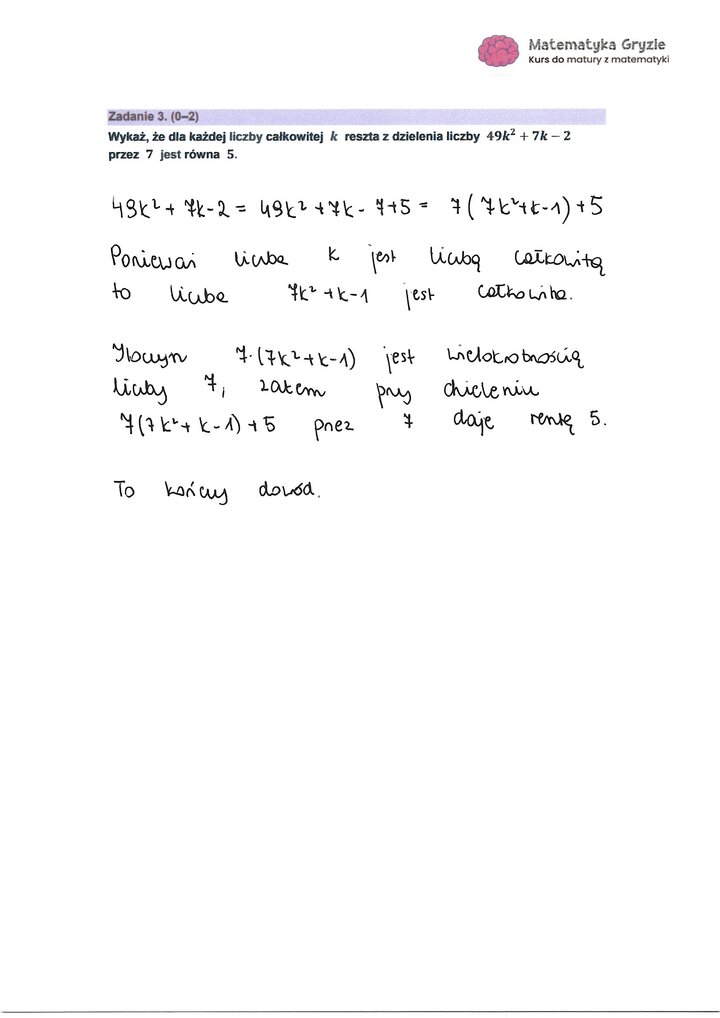 Matematyka Gryzie
Kurs do matury z matematyki
Zadanie 3. (0–2)
Wykaż, że dla każdej liczby całkowitej k reszta z dzielenia liczby 49k² + 7k − 2
przez 7 jest równa 5.
49k² + 7k - 2 = 49k² + 7k - 7 + 5 = 7(7k² + k - 1) + 5
Ponieważ liczba k jest liczbą całkowitą
to liczba 7k² + k - 1 jest całkowita.
Iloczyn 7·(7k² + k - 1) jest wielokrotnością
liczby 7, zatem przy dzieleniu
7(7k² + k - 1) + 5 przez 7 daje resztę 5.
To kończy dowód.